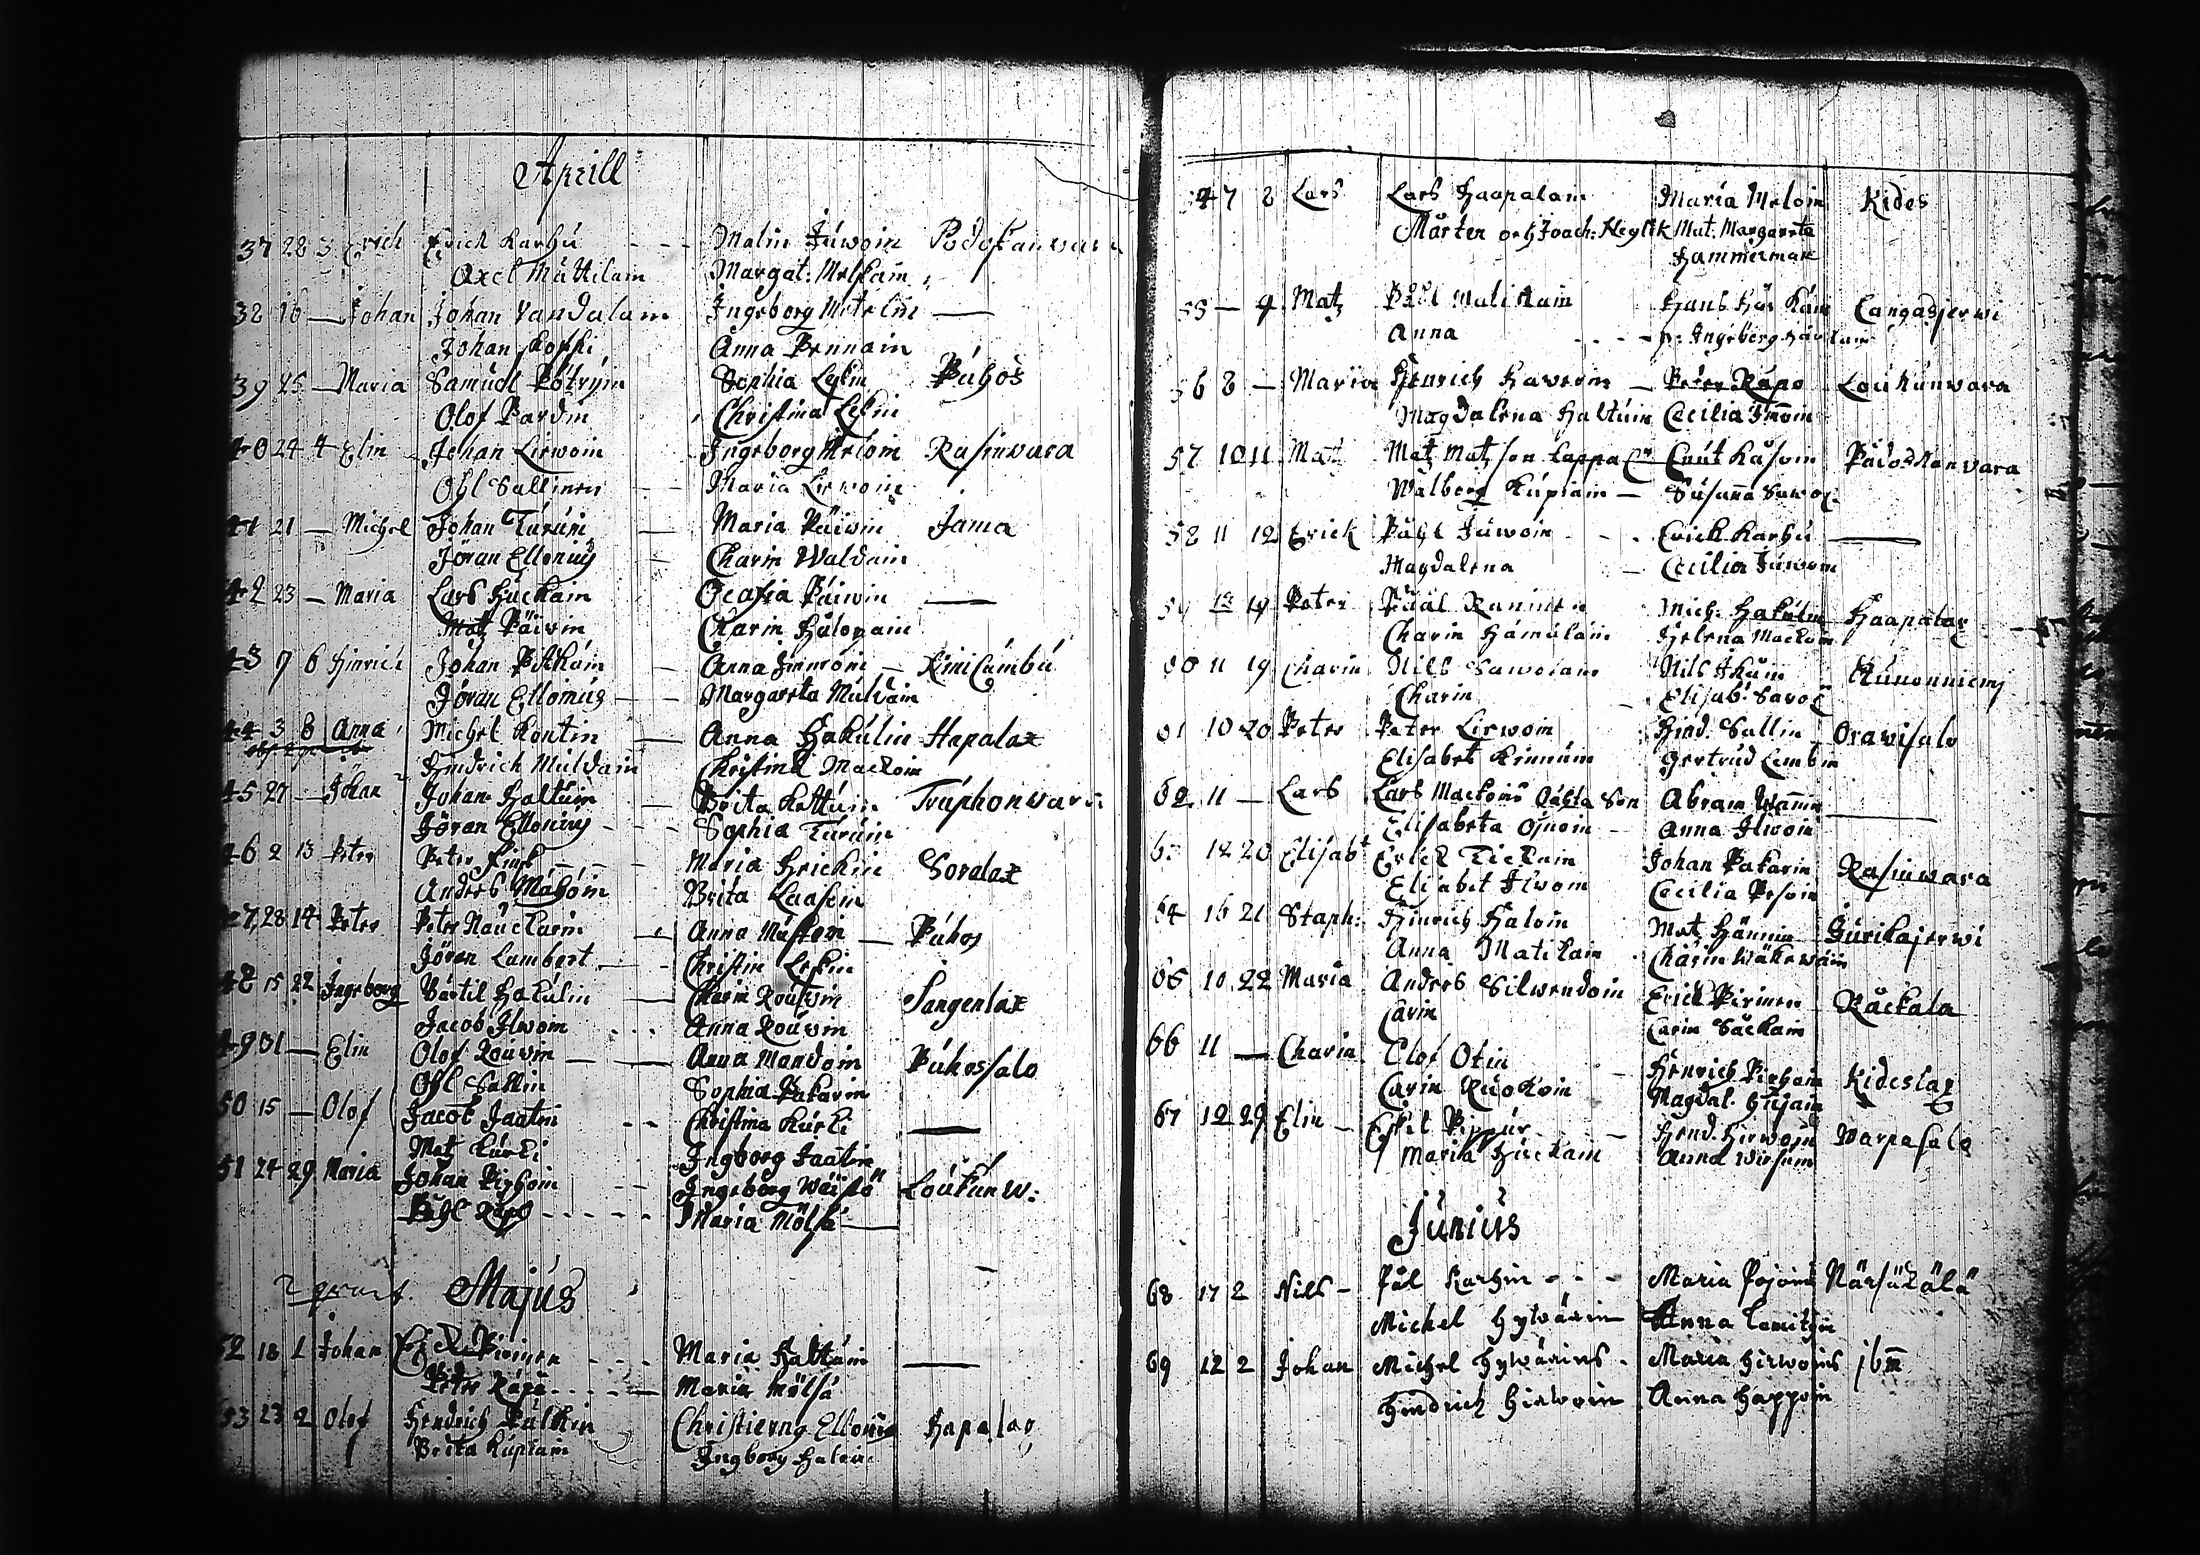 Aprill
37 28 3 Erich Erich Karhu - - - Malin Juwoin Podoskanwara
Axel Multilain Margat: Melkain
38 16 — Johan Johan Vandalain Ingeborg Metelin —
Johan Koski Anna Pennain
39 25 — Maria Samuel Pötryin Sophia Leskin Puhos
Olof Pardin Christina Leskin
40 24 4 Elin Johan Lirwoin Ingeborg Meloin Rasinwara
Ohl Sallinen — Maria Lirwoin
41 21 — Michel Johan Turuin — Maria Päiwin Jama
Jöran Ellonius — Charin Waldain
42 23 — Maria Lars Huckain Beata Päiwin —
Matz Päiwin Charin Halopain
43 9 6 Hinrich Johan Pitkäin — Anna Immoin — Kinilambu
Jöran Ellonius — Margareta Mulvain
44 3 8 Anna Michel Kontin — Anna Hakulin Hapalax
Hindrich Muldain Christina Mackoin
45 27 — Johan Johan Haltuin — Brita Kettuin Truphonwara
Jöran Ellonius - - - Sophia Turuin
46 2 13 Peter Peter Finck — Maria Hrickin Soralax
Anders Mähöin Brita Laasoin
47 28 14 Peter Peter Näuckarin — Anna Mustoin — Puhos
Jören Lambert — Christin Leskin
48 15 22 Ingeborg Bärtil Hakulin — Charin Rouwin Sangenlax
Jacob Ilwoin - - - Anna Rouwin
49 31 — Elin Olof Rouwin — Anna Mandoin Puhossalo
Ohl Sallin Sophia Pakarin
50 15 — Olof Jacob Jaatin - - Christina Kurki —
Matz Kurki Ingborg Jaatin
51 24 29 Maria Johan Pirhoin — Ingeborg Wäistö Loukunw:
Påhl Räpo - - - - - Maria Mölsä —
Majus
52 18 1 Johan Erich Pirinen - - - Maria Haltuin —
Peter Räpå - - - — Maria Mölsä
53 23 2 Olof Hendrich Pulkin Christierng Ellonius Hapalax
Brita Kupiain Ingborg Halin
47 8 Lars Lars Haapalain Maria Meloin Kides
Mårten och Joach: Neglik Mat. Margareta
Hammerman
55 — 9 Matz Påhl Matikain Hans Hurskain Cangasjerwi
Anna - - - - Ingeborg Hurskain
56 8 — Maria Henrich Haweroin — Peter Räpo Loukunwara
Magdalena Haltuin Cecilia Immoin
57 10 11 Matz Matz Matzson Lappal. Cnut Kåsoin Pådoskanwara
Walborg Kupiain — Susanna Sawol.
58 11 12 Erick Påhl Juwoin - - - Erick Karhu —
Magdalena — Cecilia Juwoin
13 19 Peter Påål Raninen Mich: Hakulin Haapalax
Charin Hämäläin Helena Mackoin
60 11 19 Charin Nills Sawolain Nils Ikäin Kunonniemj
Charin Elisab: Savol
61 10 20 Peter Peter Lirwoin Hind. Sallin Orawisalo
Elisabet Kinnuin Gertrud Lembin
62 11 — Lars Lars Mackoins Son Abram Wännin
Elisabeta Ojnoin — Anna Ilwoin —
63 12 20 Elisabt Erick Kickain Johan Pakarin Rasinwara
Elisabet Ilwoin Cecilia Pesoin
64 16 21 Staph: Hinrich Haloin Mat Hännin Jurikajerwi
Anna Matikain Charin Wäkewäin
65 10 22 Maria Anders Silwendoin Erick Pirinen Räckala
Carin Carin Säckain
66 11 — Charin Olof Otin — Henrich Pirhoin Kideslax
Carin Ruokoin Magdal. Hujain
67 12 29 Elin — Eskil Pippur — Hend. Hirwoin Warpasalo
Maria Huckain Anna Wirsuin
Junius
68 17 2 Nills — Pål Karhin - - - Maria Pojoins Närsäkälä
Michel Hylwärin Anna Tomitzin
69 12 2 Johan Michel Hylwärins - Maria Hirwoins ibm
Hindrich Hirwoin Anna Happoin